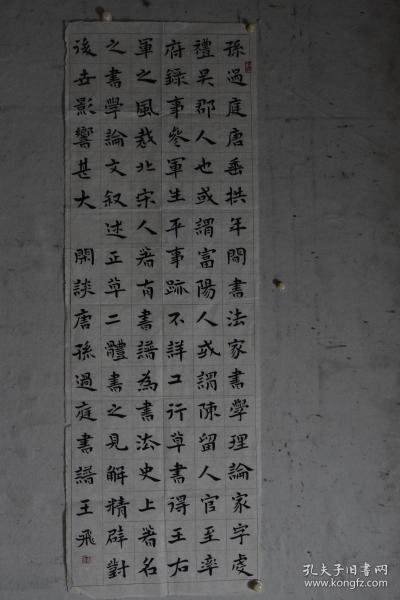 孫過庭唐垂拱年間書法家書學理論家字虔
禮吴郡人也或謂富陽人或謂陳留人官至率
府錄事參軍生平事跡不詳工行草書得王右
軍之風裁北宋人著有書譜為書法史上著名
之書學論文叙述正草二體書之見解精辟對
後世影響甚大 閑談唐孫過庭書譜王飛
孔夫子旧书网
www.kongfz.com